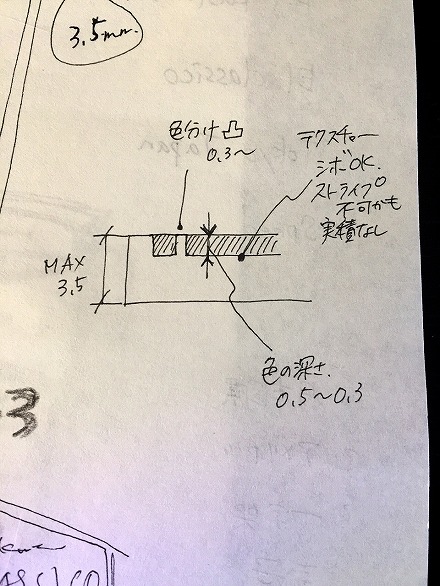 3.5mm.
色分け凸
0.3〜
テクスチャー
シボOK.
ストライプ
不可かも
実績なし
MAX
3.5
色の深さ.
0.5〜0.3
3